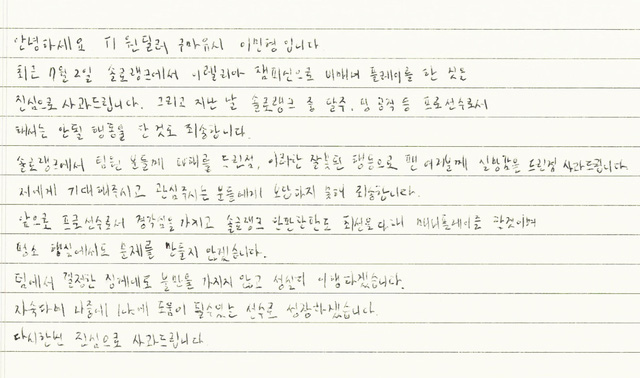 안녕하세요 T1 원딜러 구마유시 이민형 입니다
최근 7월 2일 솔로랭크에서 이렐리아 챔피언으로 비매너 플레이를 한 것은
진심으로 사과드립니다. 그리고 지난 날 솔로랭크 중 탈주, 팀 공격 등 프로선수로서
해서는 안될 행동을 한 것도 죄송합니다.
솔로랭크에서 팀원 분들께 피해를 드린점, 이러한 잘못된 행동으로 팬 여러분께 실망감을 드린점 사과드립니다.
저에게 기대해주시고 관심주시는 분들에게 보답하지 못해 죄송합니다.
앞으로 프로선수로서 경각심을 가지고 솔로랭크 한판한판도 최선을 다해 매너플레이를 할것이며
평소 행실에서도 문제를 만들지 않겠습니다.
팀에서 결정한 징계에도 불만을 가지지 않고 성실히 이행하겠습니다.
자숙하며 나중에 팀에 도움이 될수있는 선수로 성장하겠습니다.
다시한번 진심으로 사과드립니다